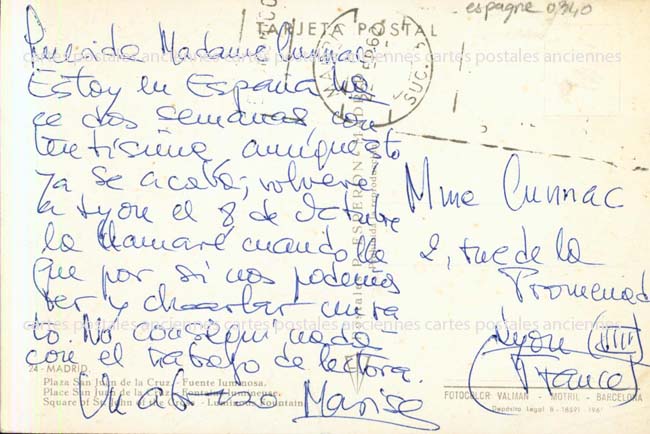 espagne 0340
TARJETA POSTAL
Querida Madame Cunnac
Estoy en España ha
ce dos semanas con
tentisima aunque esto
ya se acaba; volveré
a Lyon el 8 de Octubre
la llamaré cuando lle
gue por si nos podemos
ver y charlar un ra
to. No conseguí nada
con el trabajo de lectora.
Un abrazo Marisa
Mme Cunnac
2, rue de la
Promenade
Lyon (VIII)
France
SUC.
cartes postales anciennes cartes postales anciennes cartes postales anciennes
cartes postales anciennes cartes postales anciennes cartes postales anciennes
24 - MADRID.
Plaza San Juan de la Cruz - Fuente luminosa.
Place San Juan de la Cruz - Fontaine lumineuse.
Square of St. John of the Cross - Luminous Fountain.
FOTOCOLOR VALMAN - MOTRIL - BARCELONA
Depósito Legal B - 18591 - 1961